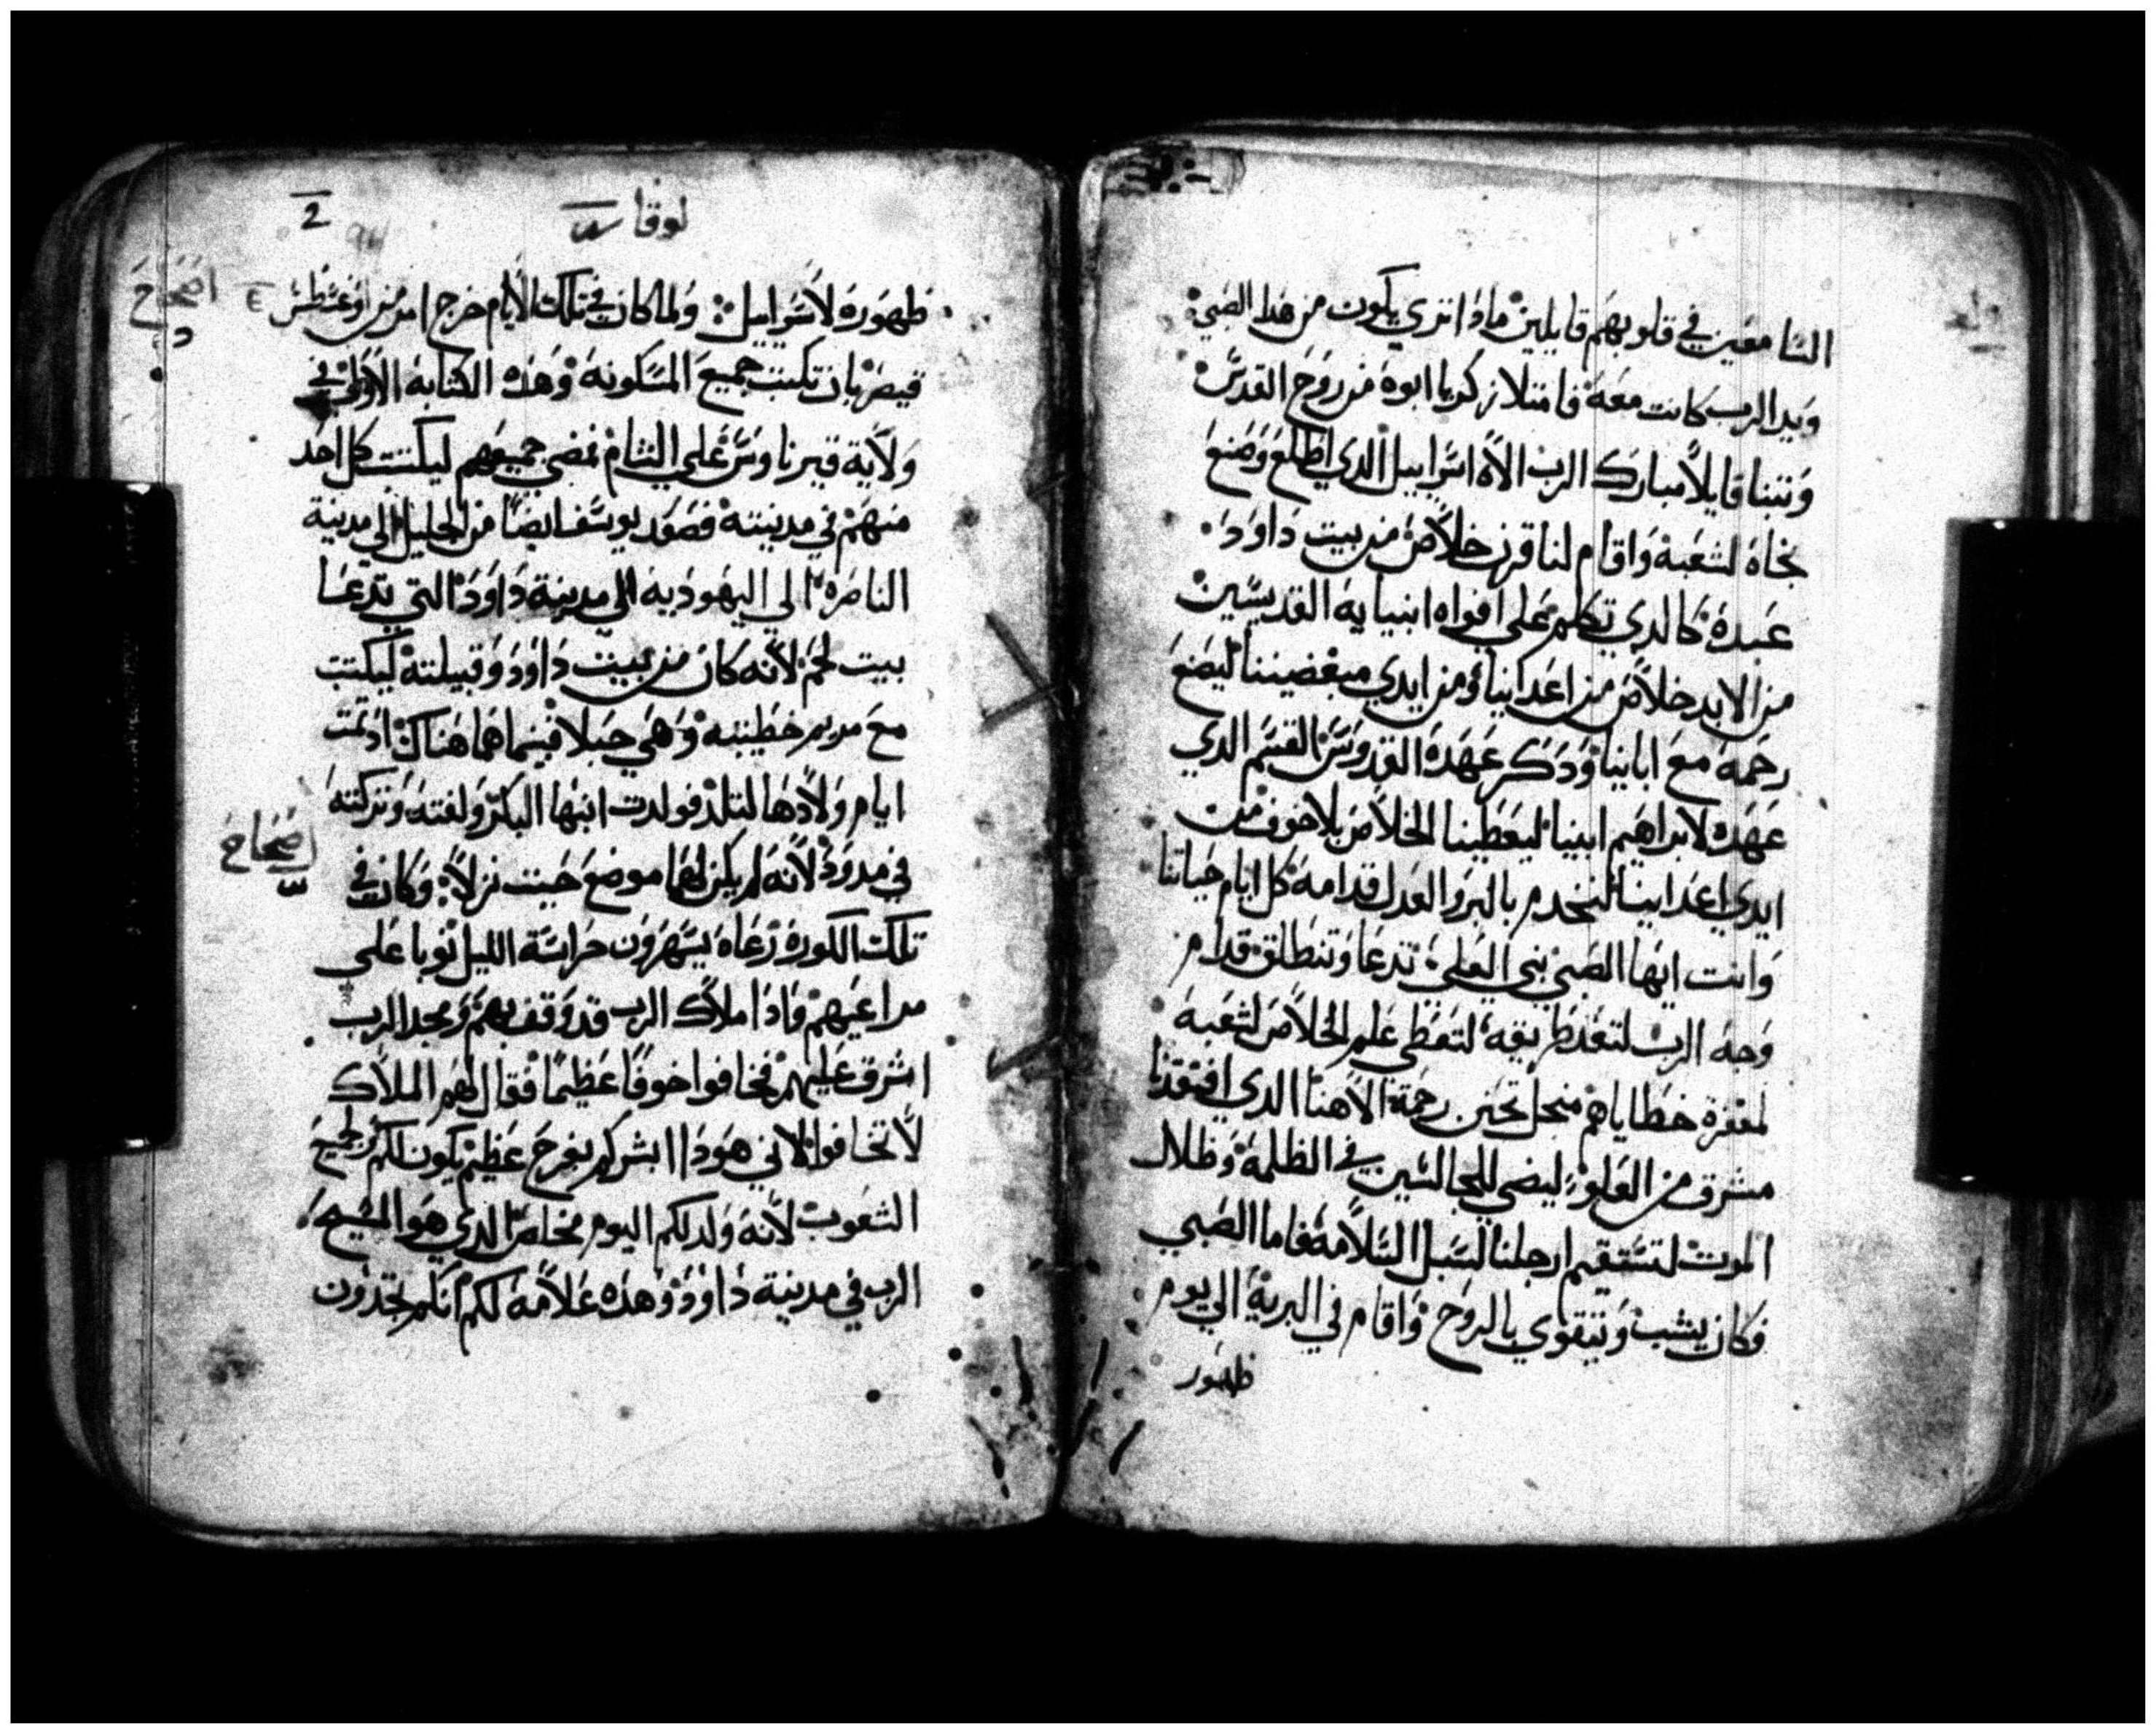 السامعين في قلوبهم قايلين ماذا تري يكون من هدا الصبي
ويد الرب كانت معه فامتلا زكريا ابوه من روح القدس
وتنبا قايلا مبارك الرب الاه اسراييل الدي اطلع وصنع
نجاه لشعبه واقام لنا قرن خلاص من بيت داود
عبده كالدي تكلم علي افواه انبيايه القديسين
من الابد خلاص من اعداينا ومن ايدي مبغضيننا ليصنع
رحمه مع اباينا ودكر عهده القدوس القسم الدي
عهده لابراهيم ابينا ليعطينا الخلاص بلا خوف من
ايدي اعداينا لنخدم بالبر والعدل قدامه كل ايام حياتنا
وانت ايها الصبي نبي العلي تدعا وتنطلق قدام
وجه الرب لتعد طريقه لتعطي علم الخلاص لشعبه
لمغفرة خطاياهم منجل تحنن رحمة الاهنا الدي افتقدنا
مشرق من العلو ليضي للجالسين في الظلمه وظلال
الموت لتستقيم ارجلنا لسبل السلامه فاما الصبي
فكان يشب ويتقوي بالروح واقام في البرية الي يوم
ظهور
لوقا
2
94
ظهوره لاسراييل ولما كان في تلك الايام خرج امر من اوغسطس
اصحاح
قيصر بان تكتب جميع المسكونه وهده الكتابه الاولي في
ولاية قيرناوس علي الشام فمضي جميعهم ليكتتب كل احد
منهم في مدينته فصعد يوسف ايضا من الجليل الي مدينة
الناصره الي اليهوديه الي مدينة داود التي تدعا
بيت لحم لانه كان من بيت داود وقبيلته ليكتتب
مع مريم خطيبته وهي حبلا فبينما هما هناك اد تمت
ايام ولادها لتلد فولدت ابنها البكر ولفته وتركته
في مدود لانه لم يكن لهما موضع حيت نزلا وكان في
اصحاح
تلك الكوره رعاه يسهرون حراسة الليل نوبا علي
مراعيهم وادا ملاك الرب قد وقف بهم ومجد الرب
اشرق عليهم فخافوا خوفا عظيما فقال لهم الملاك
لا تخافوا لاني هودا ابشركم بفرح عظيم يكون لكم ولجميع
الشعوب لانه ولد لكم اليوم مخلص الدي هو المسيح
الرب في مدينة داود وهده علامه لكم انكم تجدون